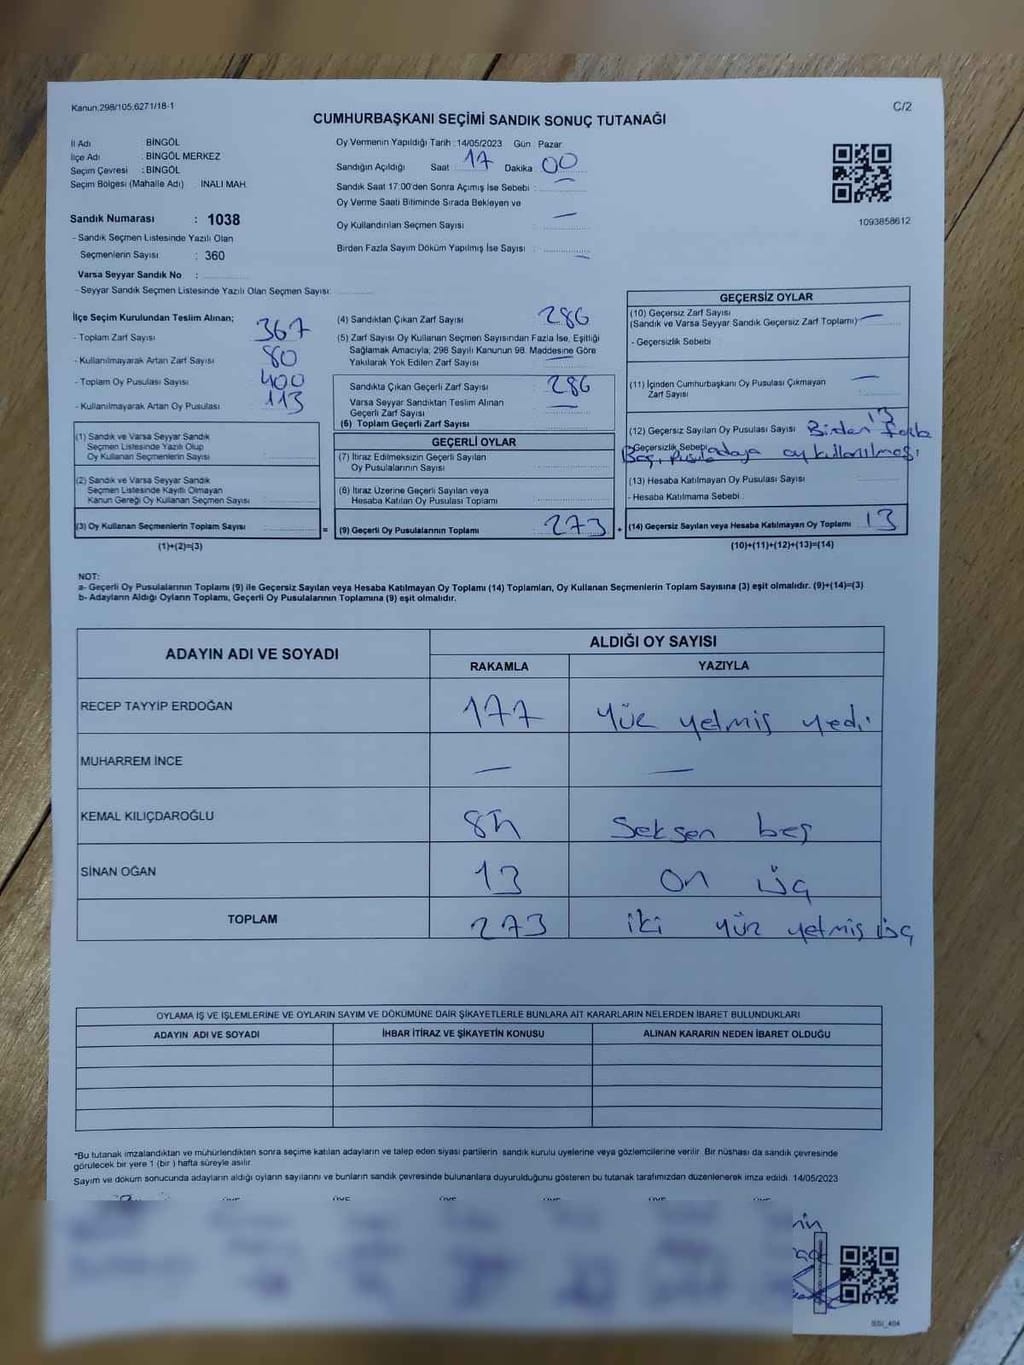 Kanun.298/105,6271/18-1
C/2
CUMHURBAŞKANI SEÇİMİ SANDIK SONUÇ TUTANAĞI
İl Adı : BİNGÖL
İlçe Adı : BİNGÖL MERKEZ
Seçim Çevresi : BİNGÖL
Seçim Bölgesi (Mahalle Adı) İNALI MAH.
Sandık Numarası : 1038
- Sandık Seçmen Listesinde Yazılı Olan
Seçmenlerin Sayısı : 360
Varsa Seyyar Sandık No :
- Seyyar Sandık Seçmen Listesinde Yazılı Olan Seçmen Sayısı:
Oy Vermenin Yapıldığı Tarih :14/05/2023 Gün : Pazar
Sandığın Açıldığı Saat 17 Dakika 00
Sandık Saat 17:00'den Sonra Açımış İse Sebebi : —
Oy Verme Saati Bitiminde Sırada Bekleyen ve
Oy Kullandırılan Seçmen Sayısı —
Birden Fazla Sayım Döküm Yapılmış İse Sayısı : —
1093858612
İlçe Seçim Kurulundan Teslim Alınan;
- Toplam Zarf Sayısı 367
- Kullanılmayarak Artan Zarf Sayısı 80
- Toplam Oy Pusulası Sayısı 400
- Kullanılmayarak Artan Oy Pusulası 113
(1) Sandık ve Varsa Seyyar Sandık
Seçmen Listesinde Yazılı Olup
Oy Kullanan Seçmenlerin Sayısı
(2) Sandık ve Varsa Seyyar Sandık
Seçmen Listesinde Kayıtlı Olmayan
Kanun Gereği Oy Kullanan Seçmen Sayısı
(3) Oy Kullanan Seçmenlerin Toplam Sayısı
(1)+(2)=(3)
(4) Sandıktan Çıkan Zarf Sayısı 286
(5) Zarf Sayısı Oy Kullanan Seçmen Sayısından Fazla İse, Eşitliği
Sağlamak Amacıyla; 298 Sayılı Kanunun 98. Maddesine Göre
Yakılarak Yok Edilen Zarf Sayısı —
Sandıkta Çıkan Geçerli Zarf Sayısı 286
Varsa Seyyar Sandıktan Teslim Alınan
Geçerli Zarf Sayısı —
(6) Toplam Geçerli Zarf Sayısı
GEÇERLİ OYLAR
(7) İtiraz Edilmeksizin Geçerli Sayılan
Oy Pusulalarının Sayısı
(8) İtiraz Üzerine Geçerli Sayılan veya
Hesaba Katılan Oy Pusulası Toplamı
= (9) Geçerli Oy Pusulalarının Toplamı 273
GEÇERSİZ OYLAR
(10) Geçersiz Zarf Sayısı
(Sandık ve Varsa Seyyar Sandık Geçersiz Zarf Toplamı) —
- Geçersizlik Sebebi
(11) İçinden Cumhurbaşkanı Oy Pusulası Çıkmayan
Zarf Sayısı —
(12) Geçersiz Sayılan Oy Pusulası Sayısı 13 Birden fazla
- Geçersizlik Sebebi adaya oy kullanılması
(13) Hesaba Katılmayan Oy Pusulası Sayısı
- Hesaba Katılmama Sebebi
+ (14) Geçersiz Sayılan veya Hesaba Katılmayan Oy Toplamı 13
(10)+(11)+(12)+(13)=(14)
NOT:
a- Geçerli Oy Pusulalarının Toplamı (9) ile Geçersiz Sayılan veya Hesaba Katılmayan Oy Toplamı (14) Toplamları, Oy Kullanan Seçmenlerin Toplam Sayısına (3) eşit olmalıdır. (9)+(14)=(3)
b- Adayların Aldığı Oyların Toplamı, Geçerli Oy Pusulalarının Toplamına (9) eşit olmalıdır.
ADAYIN ADI VE SOYADI
ALDIĞI OY SAYISI
RAKAMLA YAZIYLA
RECEP TAYYİP ERDOĞAN 177 yüz yetmiş yedi
MUHARREM İNCE — —
KEMAL KILIÇDAROĞLU 85 Seksen beş
SİNAN OĞAN 13 On üç
TOPLAM 273 iki yüz yetmiş üç
OYLAMA İŞ VE İŞLEMLERİNE VE OYLARIN SAYIM VE DÖKÜMÜNE DAİR ŞİKAYETLERLE BUNLARA AİT KARARLARIN NELERDEN İBARET BULUNDUKLARI
ADAYIN ADI VE SOYADI İHBAR İTİRAZ VE ŞİKAYETİN KONUSU ALINAN KARARIN NEDEN İBARET OLDUĞU
*Bu tutanak imzalandıktan ve mühürlendikten sonra seçime katılan adayların ve talep eden siyasi partilerin sandık kurulu üyelerine veya gözlemcilerine verilir. Bir nüshası da sandık çevresinde
görülecek bir yere 1 (bir) hafta süreyle asılır.
Sayım ve döküm sonucunda adayların aldığı oyların sayılarını ve bunların sandık çevresinde bulunanlara duyurulduğunu gösteren bu tutanak tarafımızdan düzenlenerek imza edildi. 14/05/2023